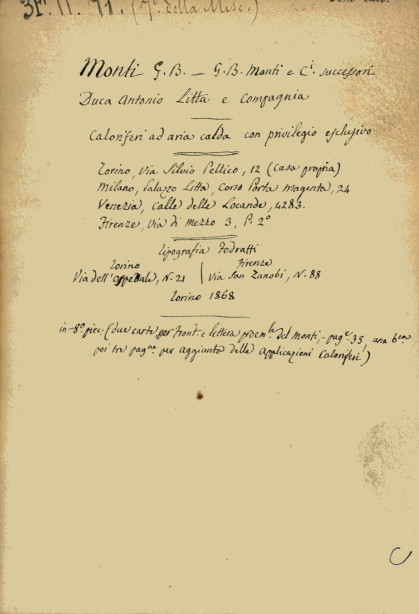 31. 11. 71. (7ª della Misc.)
Monti G.B. — G.B. Monti e C.i successori
Duca Antonio Litta e Compagnia
Caloriferi ad aria calda con privilegio esclusivo
Torino, via Silvio Pellico, 12 (casa propria)
Milano, Palazzo Litta, Corso Porta Magenta, 24
Venezia, Calle delle Locande, 4283.
Firenze, via di Mezzo 3, P. 2º
Tipografia Fodratti
Torino | Firenze
Via dell'Ospedale, N. 21 | via San Zanobi, N. 88
Torino 1868
in-8º picc. (due carte, per front. e lettera proem.le del Monti; - pag.e 35, una b.ca
poi tre pag.ne per aggiunta delle applicazioni Caloriferi)
C